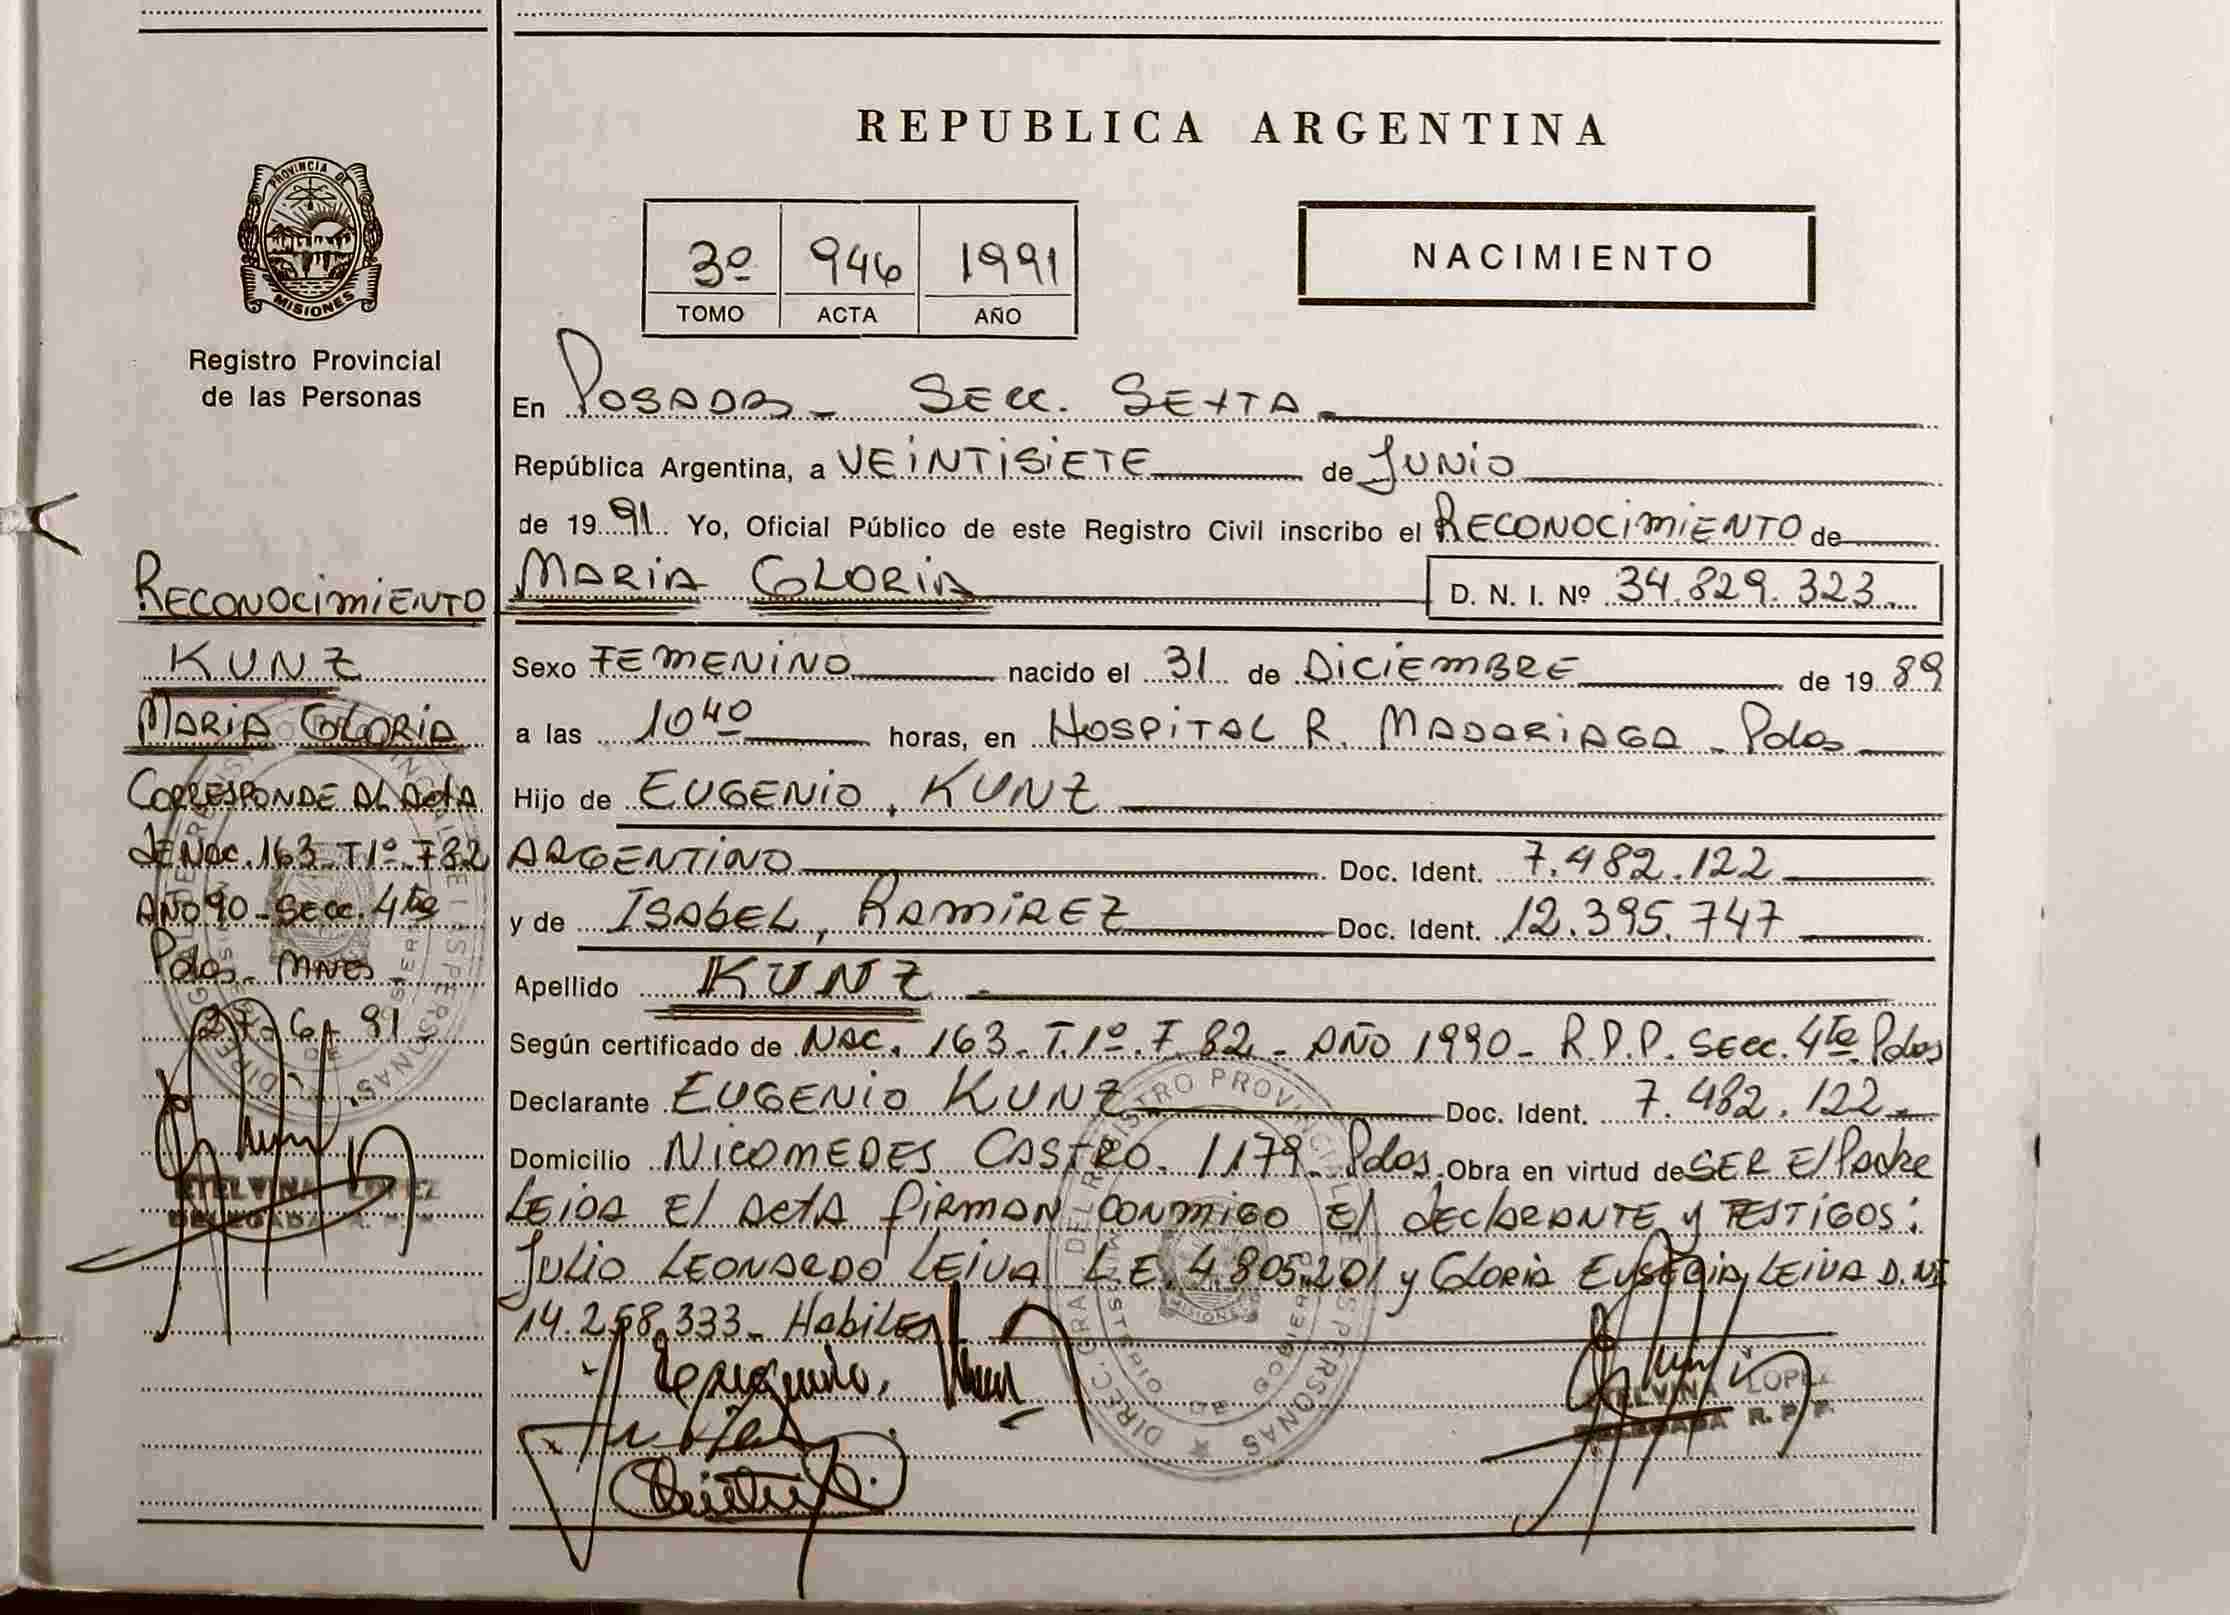 REPUBLICA ARGENTINA
PROVINCIA DE
MISIONES
Registro Provincial
de las Personas
3º 946 1991
TOMO ACTA AÑO
NACIMIENTO
En POSADAS - SECC. SEXTA -
República Argentina, a VEINTISIETE de JUNIO
de 19 91 Yo, Oficial Público de este Registro Civil inscribo el RECONOCIMIENTO de
MARIA GLORIA D. N. I. Nº 34.829.323
Sexo FEMENINO nacido el 31 de DICIEMBRE de 19 89
a las 10 40 horas, en HOSPITAL R. MADARIAGA - Pdas
Hijo de EUGENIO, KUNZ
ARGENTINO Doc. Ident. 7.482.122
y de ISABEL, RAMIREZ Doc. Ident. 12.395.747
Apellido KUNZ -
Según certificado de NAC. 163 - T. 1º - F. 82 - AÑO 1990 - R.P.P. SECC. 4ta Pdas
Declarante EUGENIO KUNZ Doc. Ident. 7.482.122
Domicilio NICOMEDES CASTRO - 1179 - Pdas. Obra en virtud de SER El Padre
LEIDA El ActA firman conmigo El declarante y TESTIGOS:
JULIO LEONARDO LEIVA L.E. 4.805.201 y GLORIA EUSEBIA LEIVA D.NI
14.268.333 - Habiles
RECONOCIMIENTO
KUNZ
MARIA GLORIA
CORRESPONDE AL ActA
de Nac. 163 - T 1º - F 82
AÑO 90 - SECC. 4ta
Pdas - MNES
27-6-91
ETELVINA LOPEZ
DELEGADA R. P. P.
ETELVINA LOPEZ
DELEGADA R. P. P.
DIREC. GRAL DEL REGISTRO PROVINCIAL DE LAS PERSONAS
MINISTERIO DE GOBIERNO
MISIONES